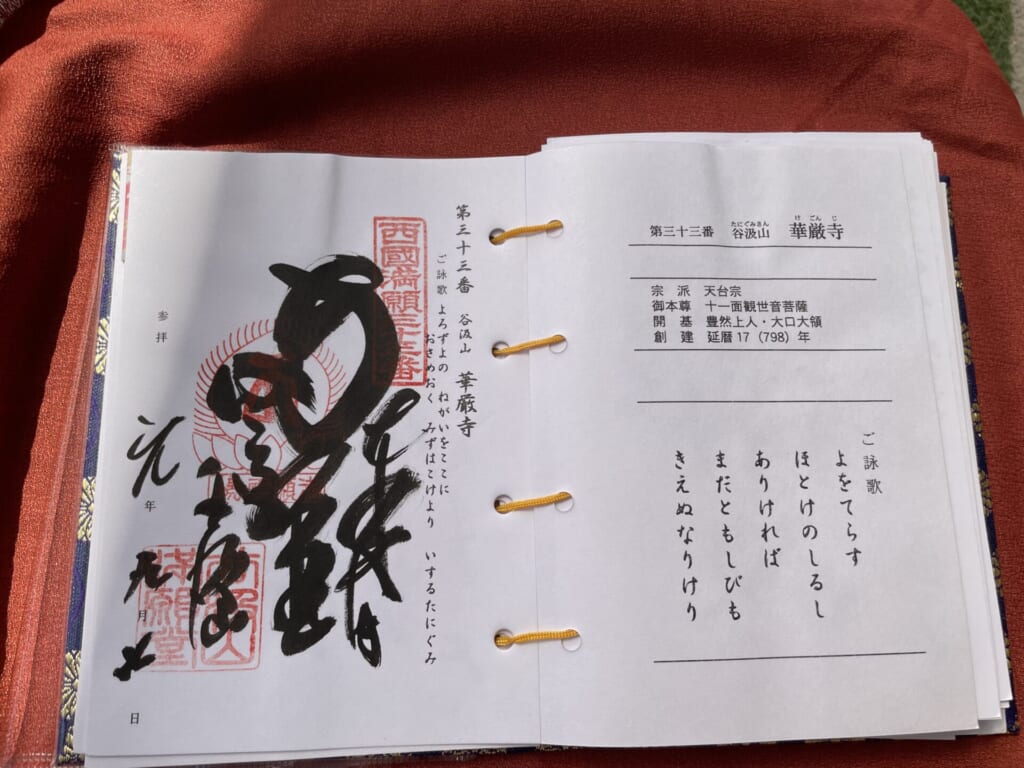 たにぐみさん けごんじ
第三十三番 谷汲山 華厳寺
宗 派 天台宗
御本尊 十一面観世音菩薩
開 基 豊然上人・大口大領
創 建 延暦17（798）年
ご詠歌
よをてらす
ほとけのしるし
ありければ
まだともしびも
きえぬなりけり
第三十三番 谷汲山 華厳寺
ご詠歌 よろずよの ねがいをここに
おさめおく みずはこけより いするたにぐみ
西國満願三十三番
谷汲山
満願堂
参拝
元年九月七日